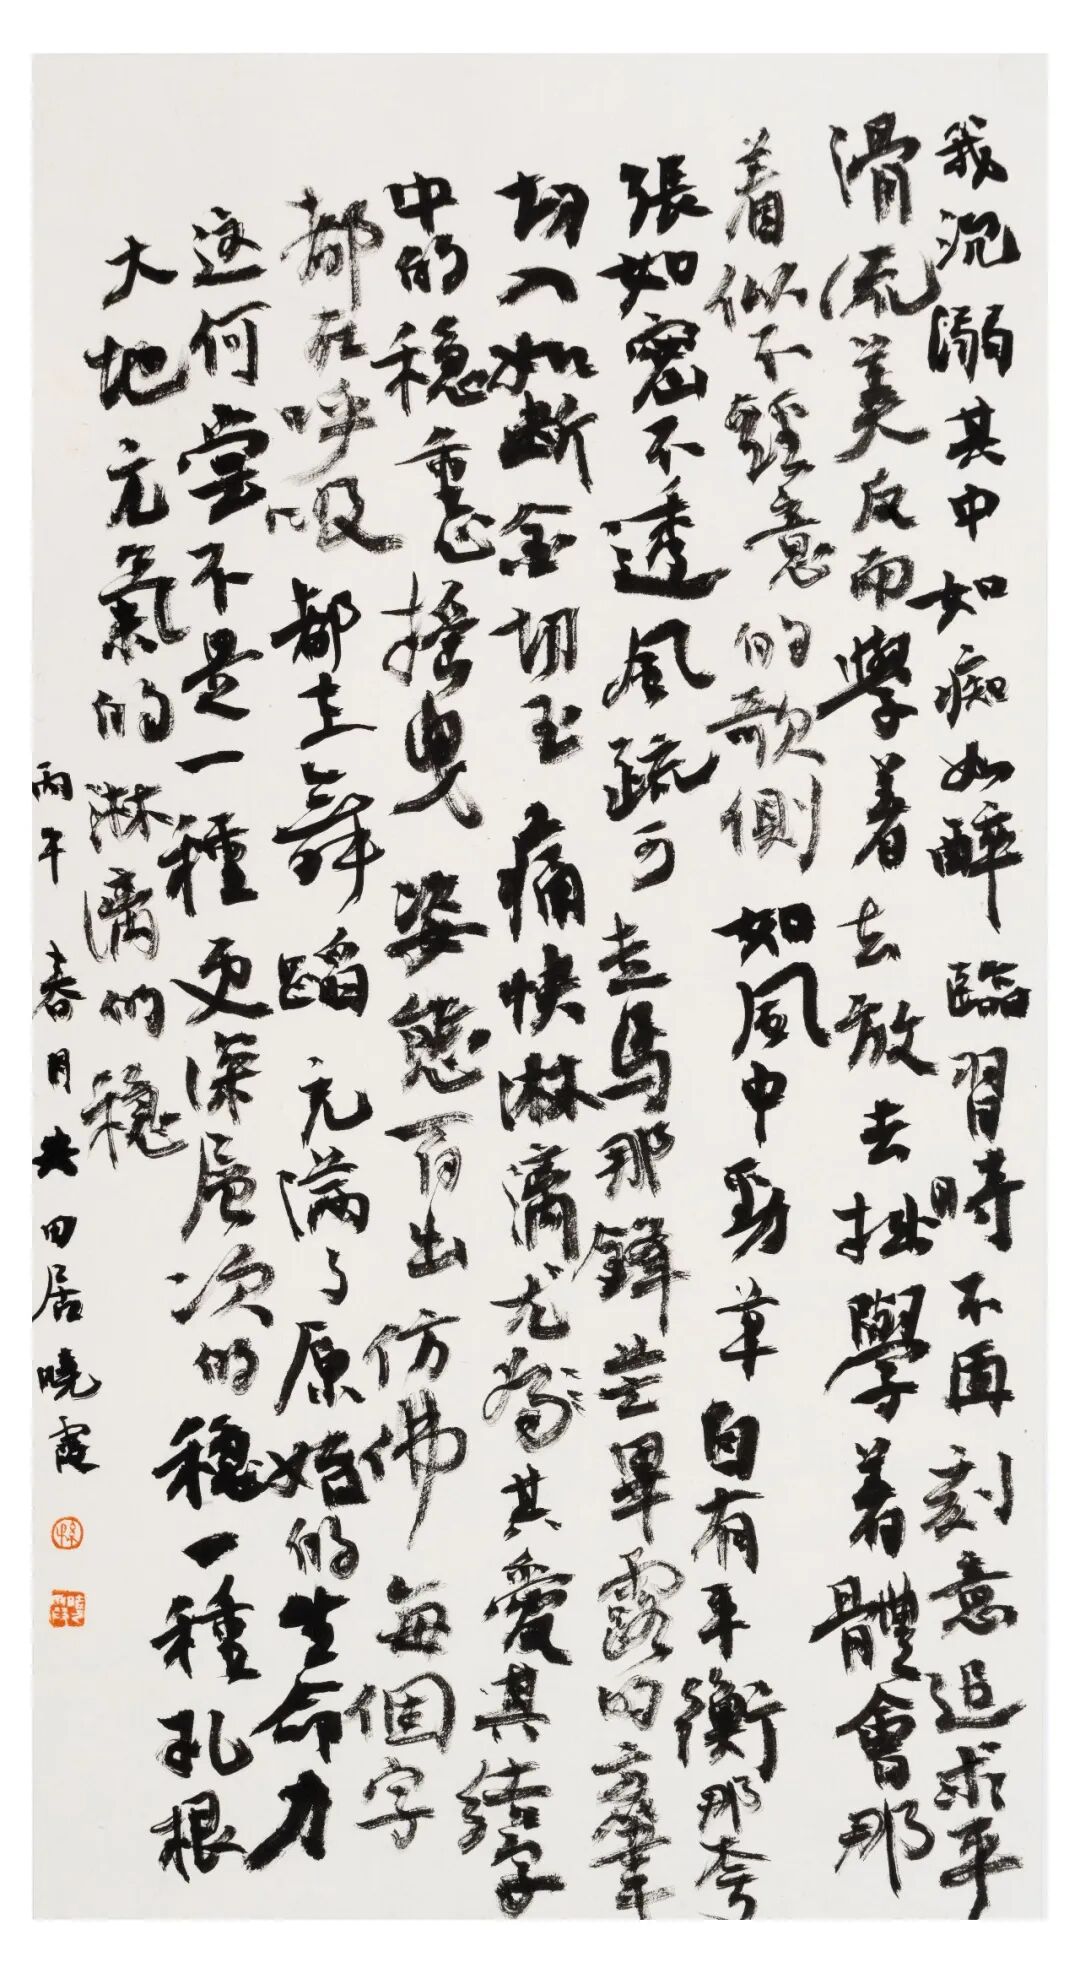 我沉溺其中如痴如醉臨習時不再刻意追求平
滑流美反而學着去放去拙學着體會那
着似不經意的欹側如風中勁草自有平衡那夸
張如密不透風疏可走馬那鋒芒畢露的
切入如斷金切玉痛快淋漓尤為其愛其結字
中的穩重摇曳姿態百出仿佛每個字
都在呼吸都在舞蹈充滿了原始的生命力
这何嘗不是一種更深层次的穩一種扎根
大地元氣的淋漓的穩
丙午春月 田居曉霞